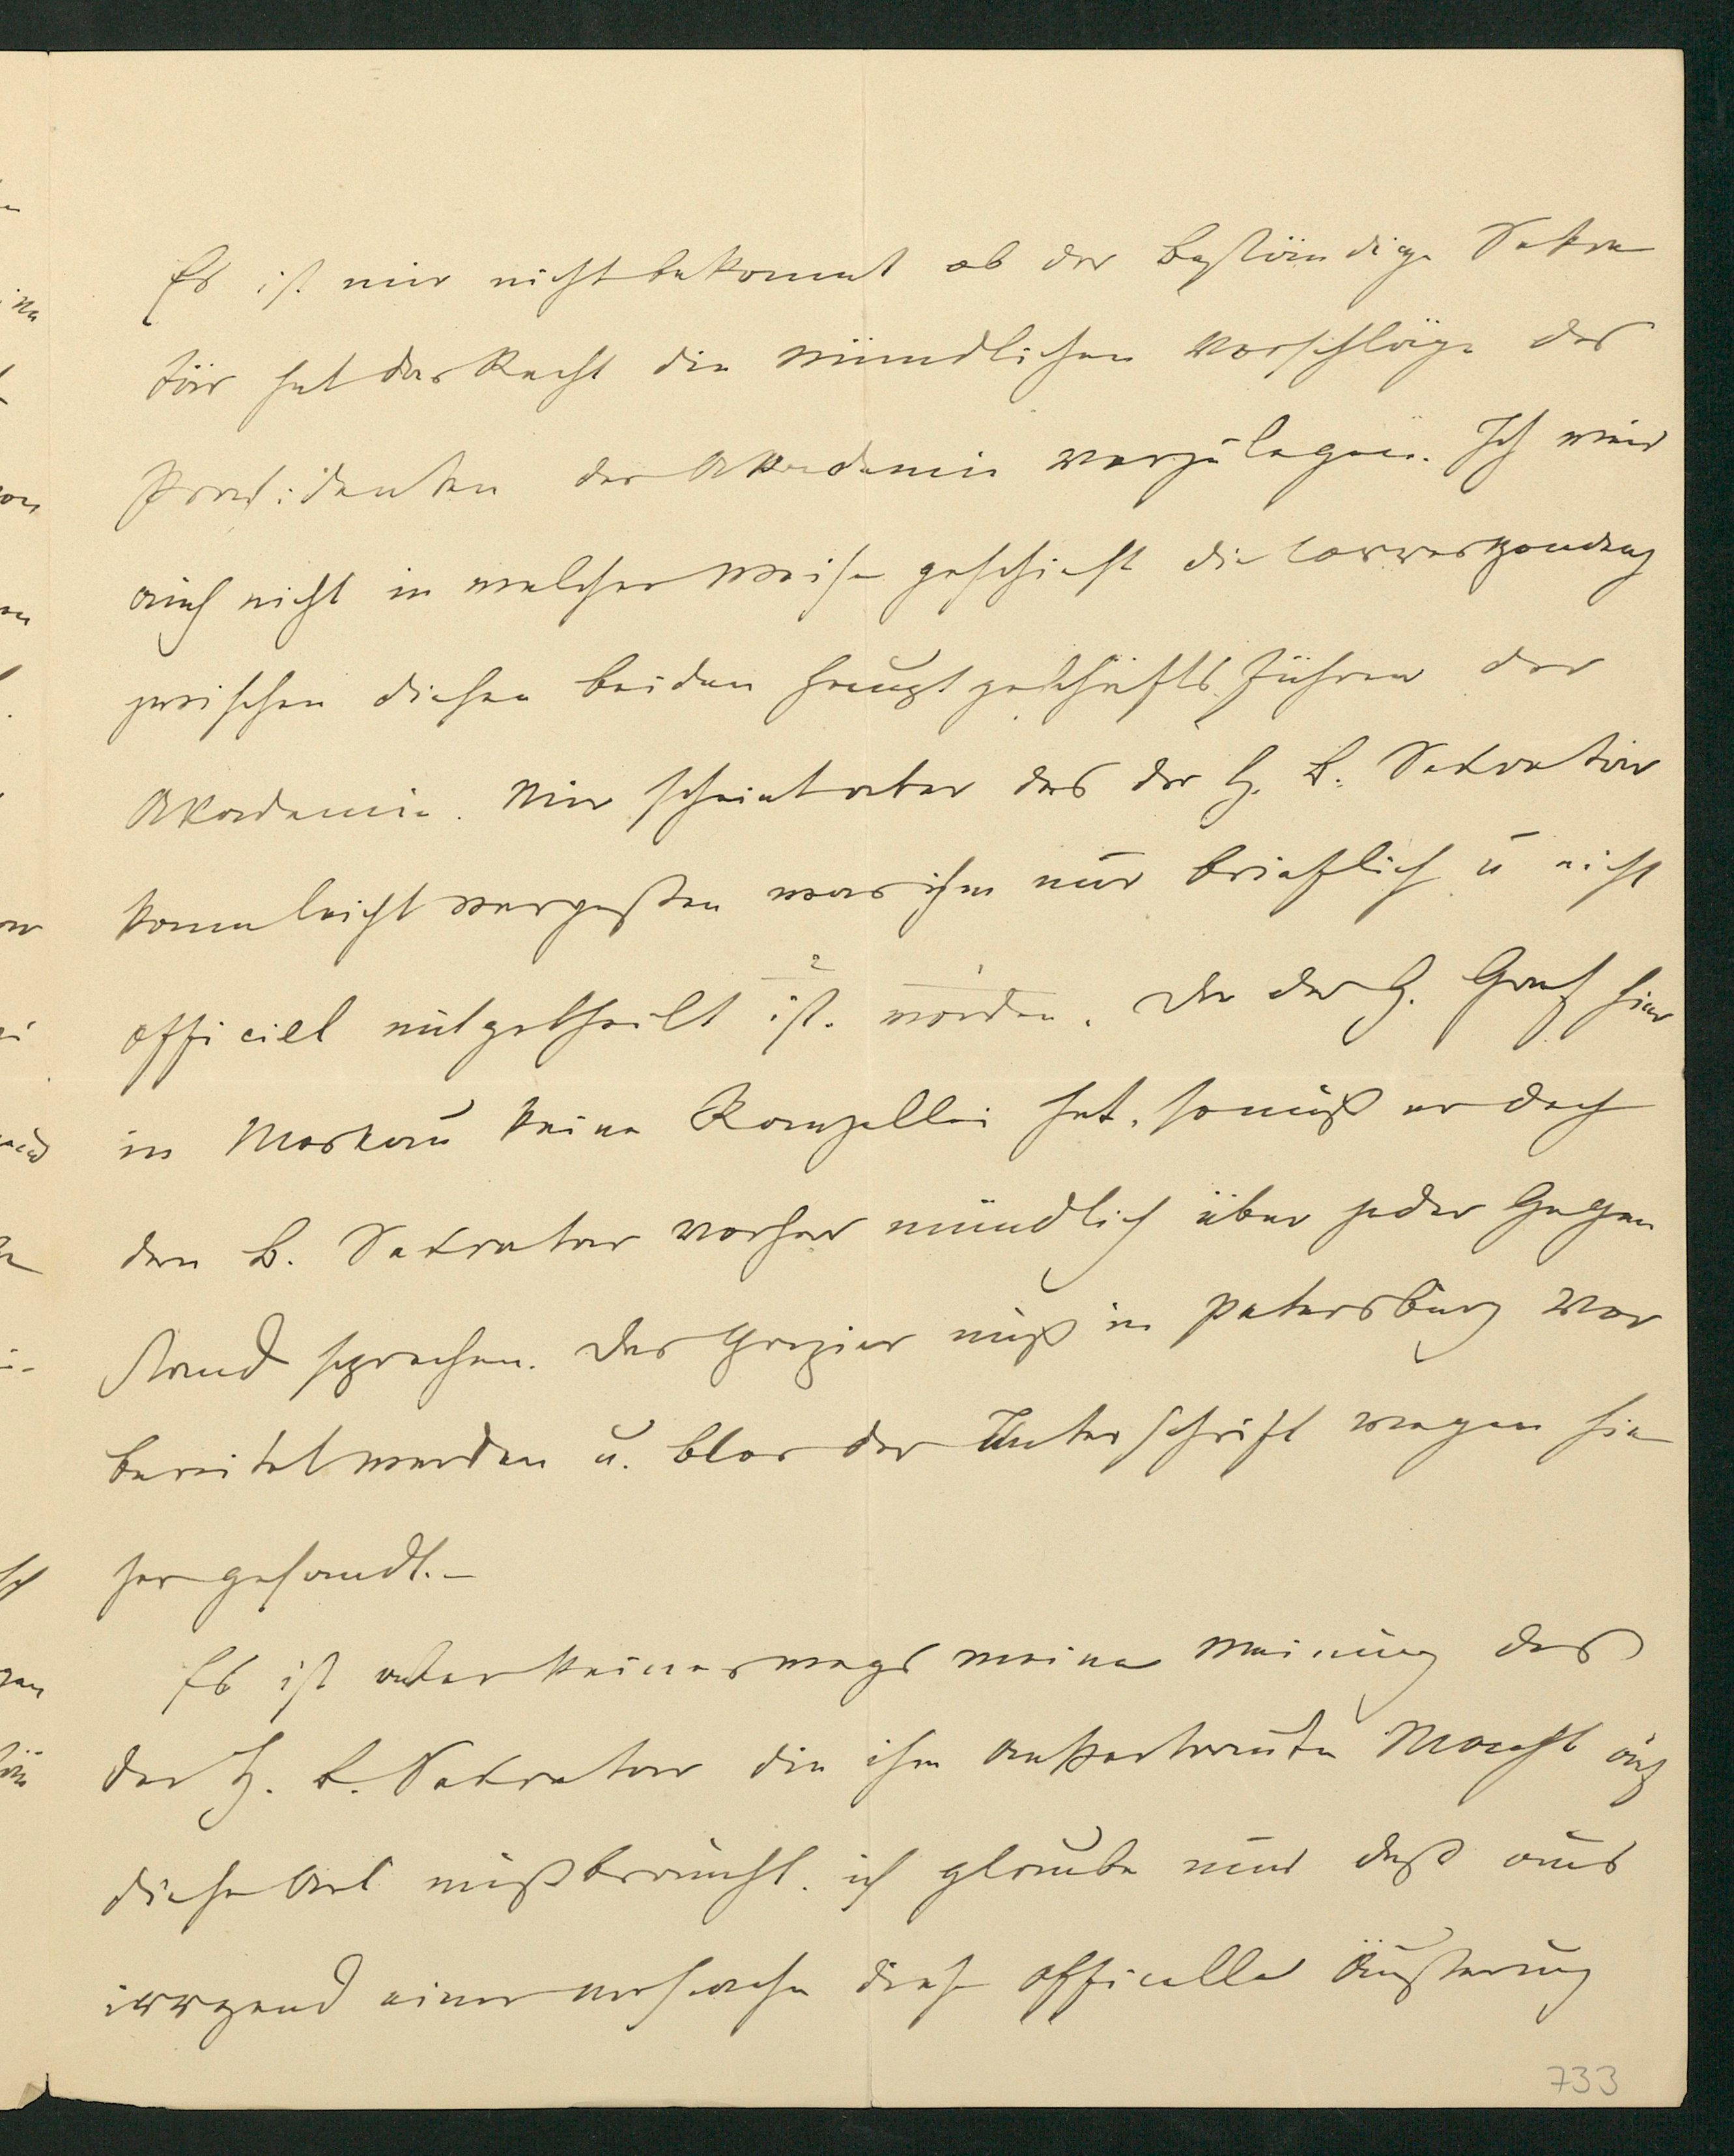 Es ist mir nicht bekannt ob der Beständige Sekre
tär hat das Recht die mündlichen Vorschläge des
Präsidenten der Akademie vorzulegen. Ich weis
auch nicht in welcher Weise geschieht die Correspondenz
zwischen diesen beiden Hauptgeschäftsführern der
Akademie. Mir scheint aber das der H. B. Sekretär
kann leicht vergessen was ihm nur brieflich u nicht
officiel mitgetheilt ist worden. Da der H. Graf hier
in Moskau keine Kanzellei hat, so muß er doch
den B. Sekretär vorher mündlich über jeder Gegen
stand sprechen. Das Papier muß in Petersburg vor
bereitet werden u. blos der Unterschrift wegen hie
her gesandt. –
Es ist aber keineswegs meine Meinung das
der H. B. Sekretär die ihm anvertraute Macht auf
diese Art mißbraucht. ich glaube nur daß aus
irrgend einer Ursache diese officelle Äusserung
733